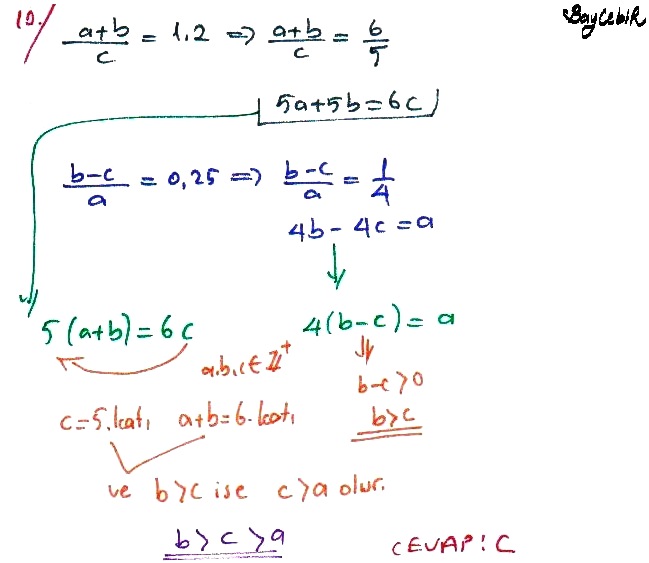 10.) BayCebiR
a+b/c = 1.2 => a+b/c = 6/5
5a+5b=6c
b-c/a = 0,25 => b-c/a = 1/4
4b-4c=a
5(a+b)=6c 4(b-c)=a
a,b,c ∈ Z⁺
b-c>0
c=5.katı a+b=6.katı b>c
ve b>c ise c>a olur.
b>c>a
CEVAP: C